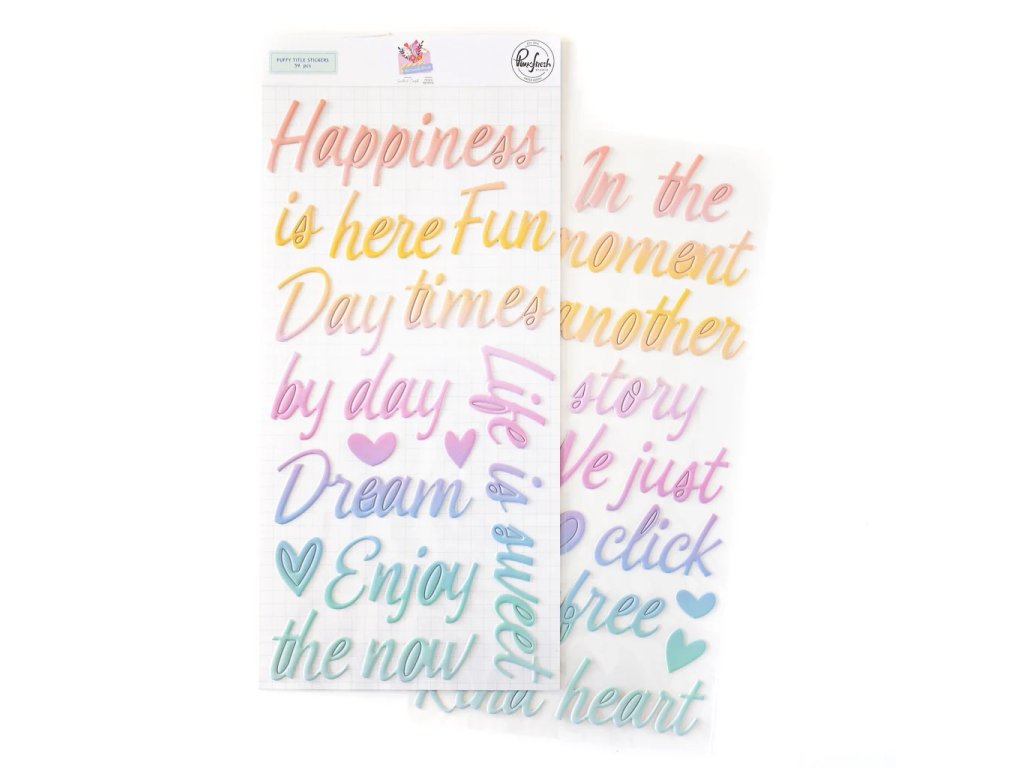 PUFFY TITLE STICKERS
54 pcs
Pinkfresh
STUDIO
Happiness
is here Fun
Day times
by day
Life is sweet
Dream
Enjoy
the now
In the
moment
another
story
We just
click
free
Kind heart